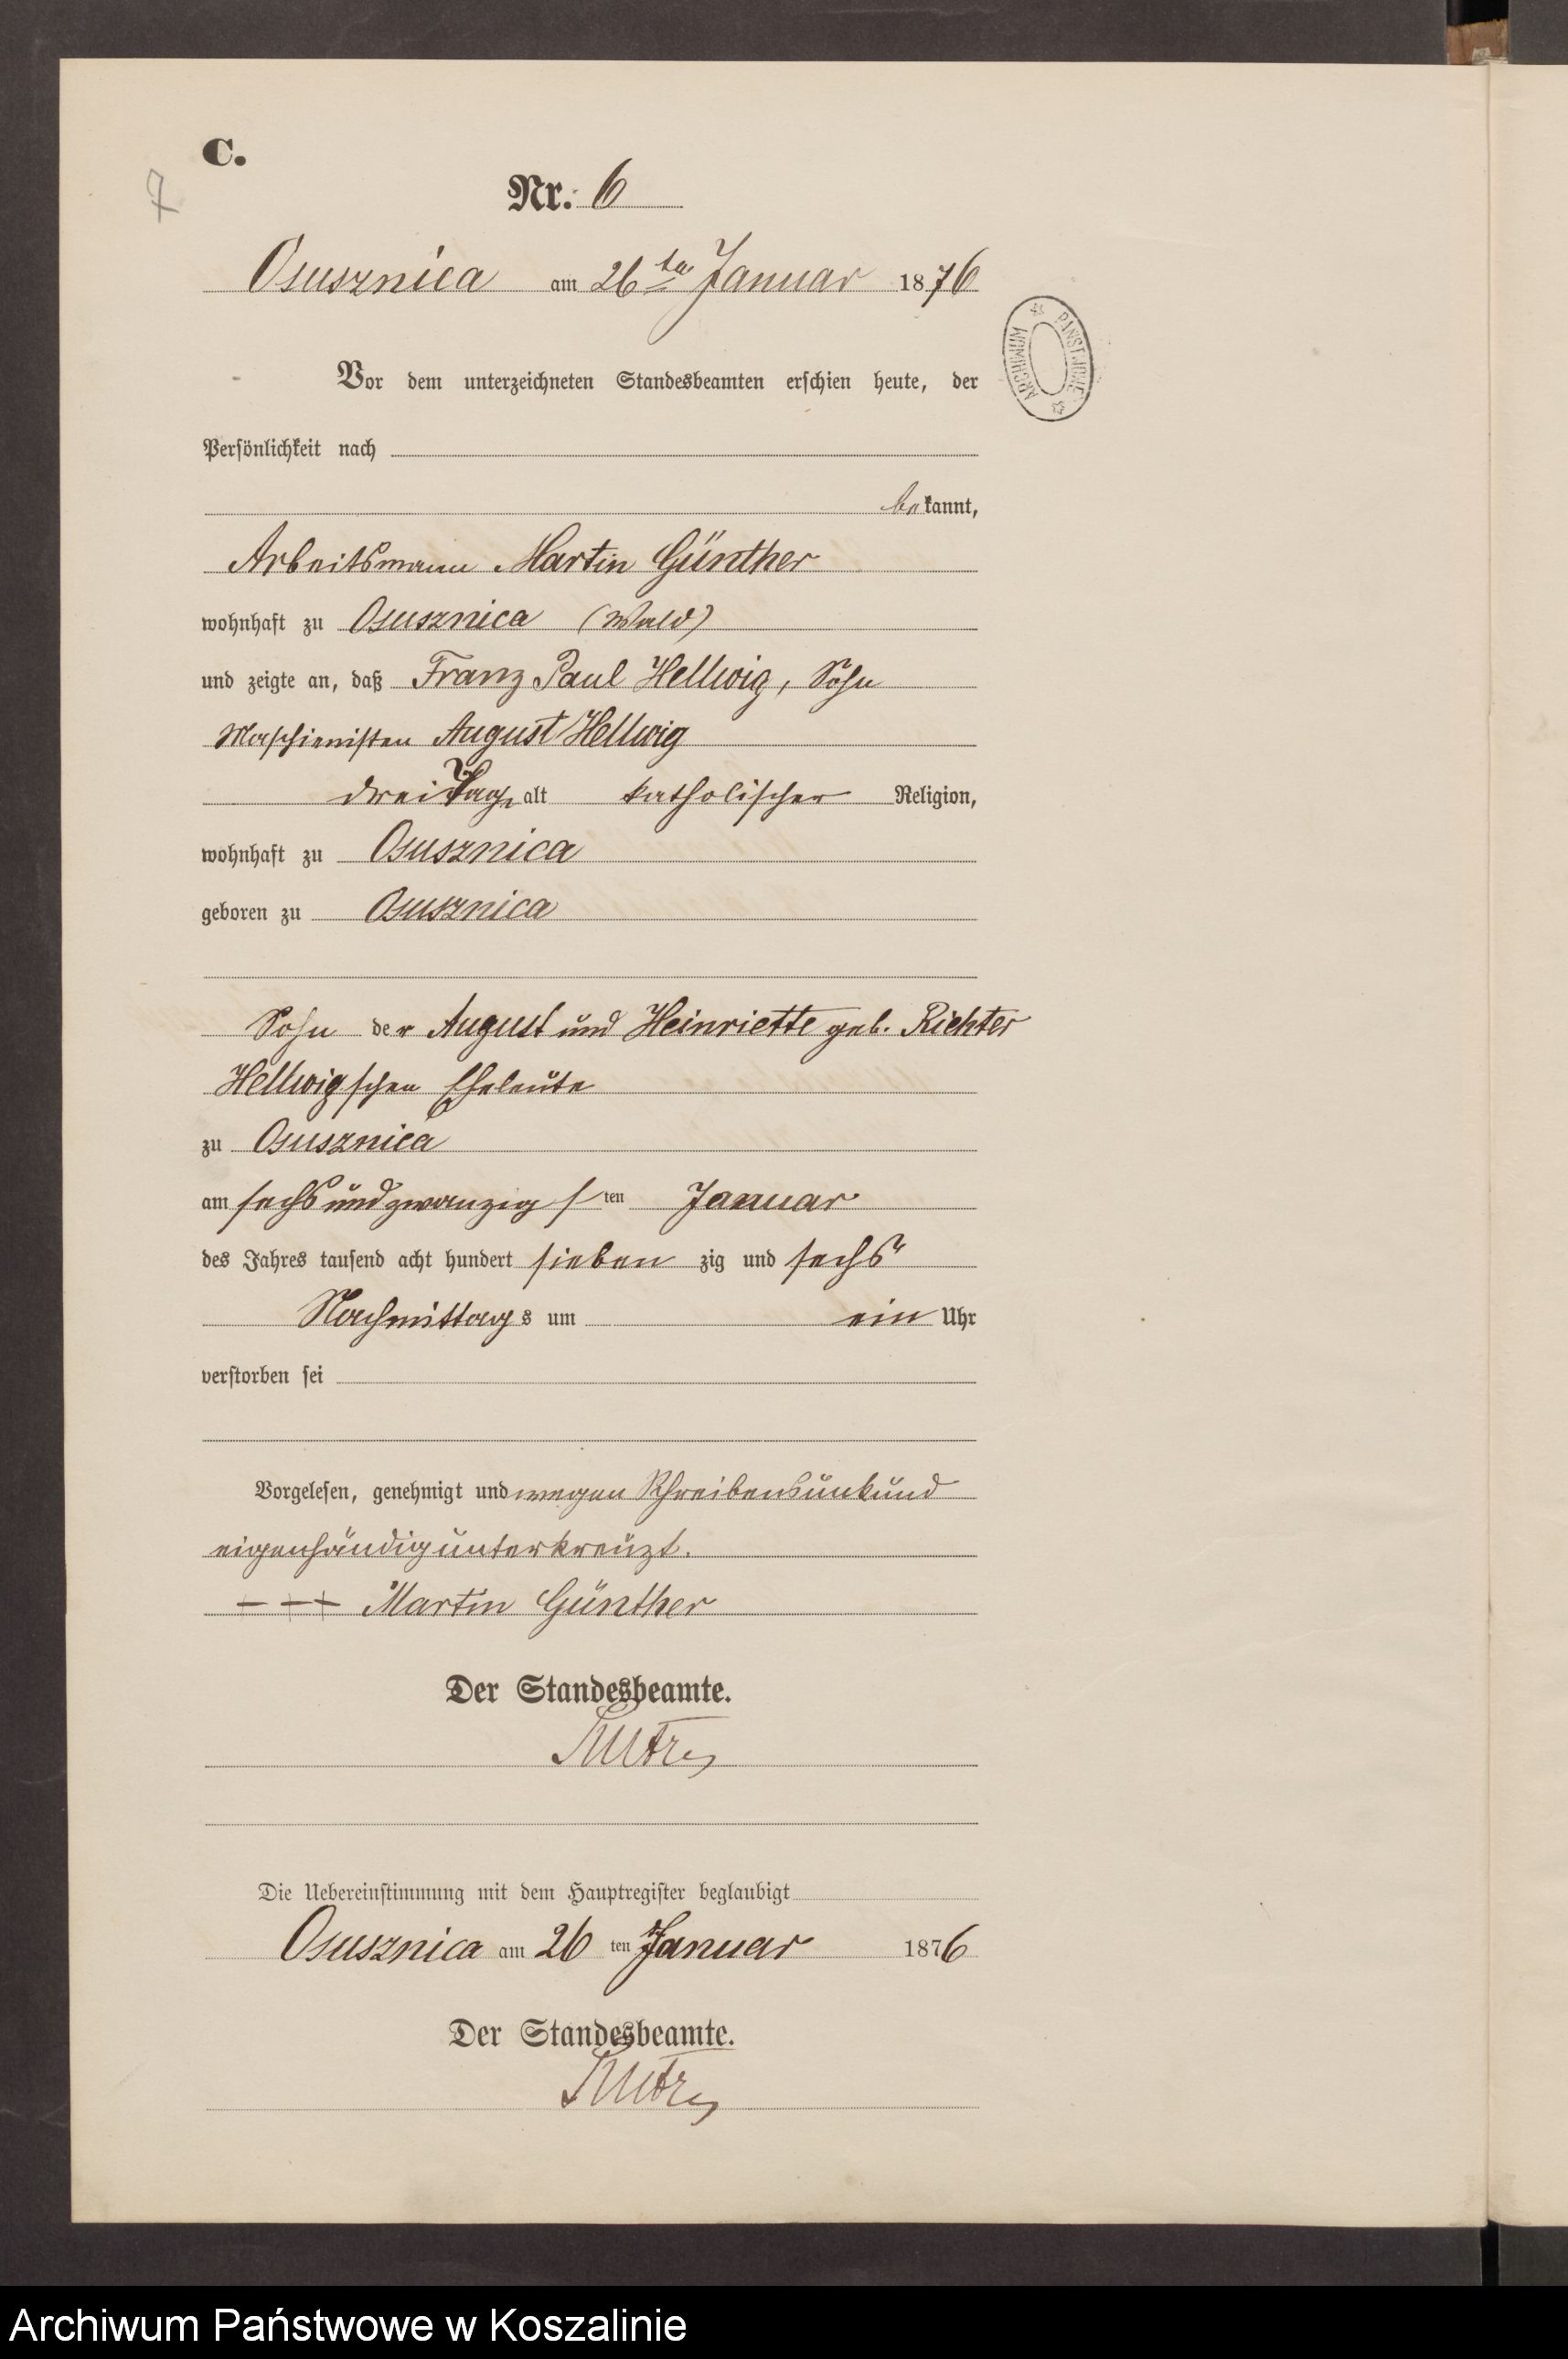 C.
7
Nr. 6
Osusznica am 26ten Januar 1876
Vor dem unterzeichneten Standesbeamten erschien heute, der
Persönlichkeit nach
bekannt,
Arbeitsmann Martin Günther
wohnhaft zu Osusznica (Wald)
und zeigte an, daß Franz Paul Hellwig, Sohn
Maschienisten August Hellwig
drei Tage alt katholischer Religion,
wohnhaft zu Osusznica
geboren zu Osusznica
Sohn der August und Heinriette geb. Richter
Hellwigschen Eheleute
zu Osusznica
am sechsundzwanzigsten Januar
des Jahres tausend acht hundert siebenzig und sechs
Nachmittags um ein Uhr
verstorben sei
Vorgelesen, genehmigt und wegen Schreibensunkund
eigenhändig unterkreuzt.
+ + + Martin Günther
Der Standesbeamte.
Die Uebereinstimmung mit dem Hauptregister beglaubigt
Osusznica am 26ten Januar 1876
Der Standesbeamte.
ARCHIWUM PAŃSTWOWE
Archiwum Państwowe w Koszalinie